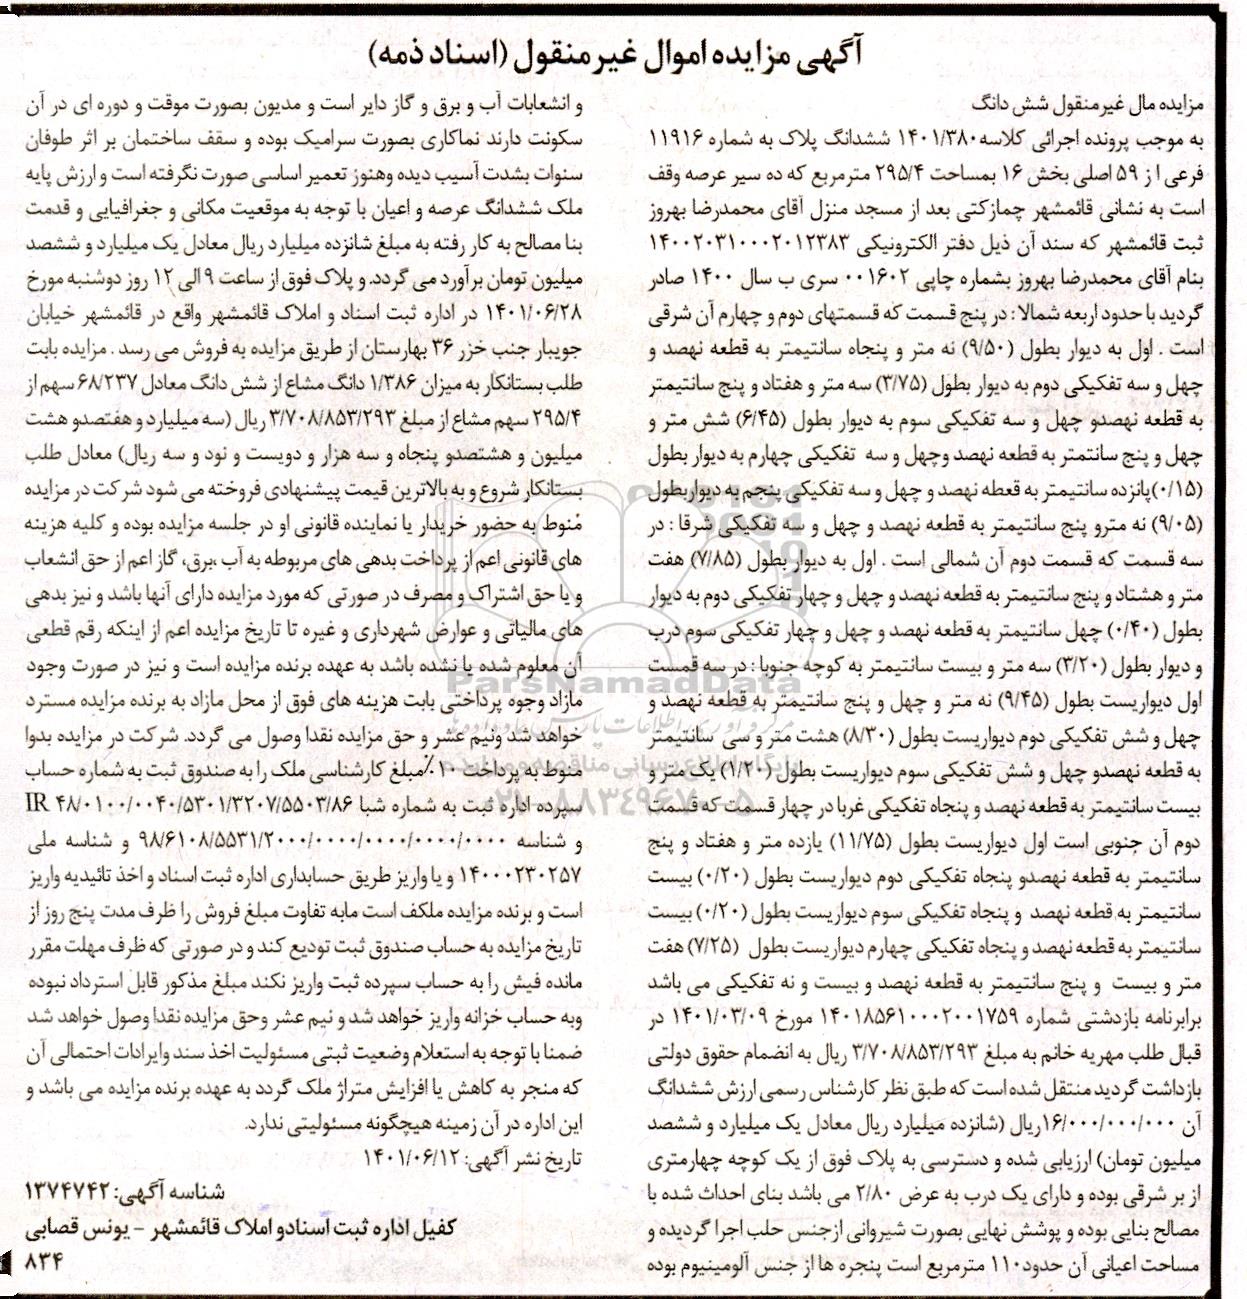 آگهی مزایده اموال غیرمنقول (اسناد ذمه)
مزایده مال غیرمنقول شش دانگ
به موجب پرونده اجرائی کلاسه ۱۴۰۱/۳۸۰ ششدانگ پلاک به شماره ۱۱۹۱۶
فرعی از ۵۹ اصلی بخش ۱۶ بمساحت ۲۹۵/۴ مترمربع که ده سیر عرصه وقف
است به نشانی قائمشهر چمازکتی بعد از مسجد منزل آقای محمدرضا بهروز
ثبت قائمشهر که سند آن ذیل دفتر الکترونیکی ۱۴۰۰۲۰۳۱۰۰۰۲۰۱۲۳۸۳
بنام آقای محمدرضا بهروز بشماره چاپی ۰۰۱۶۰۲ سری ب سال ۱۴۰۰ صادر
گردید با حدود اربعه شمالا : در پنج قسمت که قسمتهای دوم و چهارم آن شرقی
است . اول به دیوار بطول (۹/۵۰) نه متر و پنجاه سانتیمتر به قطعه نهصد و
چهل و سه تفکیکی دوم به دیوار بطول (۳/۷۵) سه متر و هفتاد و پنج سانتیمتر
به قطعه نهصدو چهل و سه تفکیکی سوم به دیوار بطول (۶/۴۵) شش متر و
چهل و پنج سانتمتر به قطعه نهصد وچهل و سه تفکیکی چهارم به دیوار بطول
(۰/۱۵)پانزده سانتیمتر به قعطه نهصد و چهل و سه تفکیکی پنجم به دیواربطول
(۹/۰۵) نه مترو پنج سانتیمتر به قطعه نهصد و چهل و سه تفکیکی شرقا : در
سه قسمت که قسمت دوم آن شمالی است . اول به دیوار بطول (۷/۸۵) هفت
متر و هشتاد و پنج سانتیمتر به قطعه نهصد و چهل و چهار تفکیکی دوم به دیوار
بطول (۰/۴۰) چهل سانتیمتر به قطعه نهصد و چهل و چهار تفکیکی سوم درب
و دیوار بطول (۳/۲۰) سه متر و بیست سانتیمتر به کوچه جنوبا : در سه قمست
اول دیواریست بطول (۹/۴۵) نه متر و چهل و پنج سانتیمتر به قطعه نهصد و
چهل و شش تفکیکی دوم دیواریست بطول (۸/۳۰) هشت متر و سی سانتیمتر
به قطعه نهصدو چهل و شش تفکیکی سوم دیواریست بطول (۱/۲۰) یک متر و
بیست سانتیمتر به قطعه نهصد و پنجاه تفکیکی غربا در چهار قسمت که قسمت
دوم آن جنوبی است اول دیواریست بطول (۱۱/۷۵) یازده متر و هفتاد و پنج
سانتیمتر به قطعه نهصدو پنجاه تفکیکی دوم دیواریست بطول (۰/۲۰) بیست
سانتیمتر به قطعه نهصد و پنجاه تفکیکی سوم دیواریست بطول (۰/۲۰) بیست
سانتیمتر به قطعه نهصد و پنجاه تفکیکی چهارم دیواریست بطول (۷/۲۵) هفت
متر و بیست و پنج سانتیمتر به قطعه نهصد و بیست و نه تفکیکی می باشد
برابرنامه بازدشتی شماره ۱۴۰۱۸۵۶۱۰۰۰۲۰۰۱۷۵۹ مورخ ۱۴۰۱/۰۳/۰۹ در
قبال طلب مهریه خانم به مبلغ ۳/۷۰۸/۸۵۳/۲۹۳ ریال به انضمام حقوق دولتی
بازداشت گردید منتقل شده است که طبق نظر کارشناس رسمی ارزش ششدانگ
آن ۱۶/۰۰۰/۰۰۰/۰۰۰ریال (شانزده میلیارد ریال معادل یک میلیارد و ششصد
میلیون تومان) ارزیابی شده و دسترسی به پلاک فوق از یک کوچه چهارمتری
از بر شرقی بوده و دارای یک درب به عرض ۲/۸۰ می باشد بنای احداث شده با
مصالح بنایی بوده و پوشش نهایی بصورت شیروانی ازجنس حلب اجرا گردیده و
مساحت اعیانی آن حدود۱۱۰ مترمربع است پنجره ها از جنس آلومینیوم بوده
و انشعابات آب و برق و گاز دایر است و مدیون بصورت موقت و دوره ای در آن
سکونت دارند نماکاری بصورت سرامیک بوده و سقف ساختمان بر اثر طوفان
سنوات بشدت آسیب دیده وهنوز تعمیر اساسی صورت نگرفته است و ارزش پایه
ملک ششدانگ عرصه و اعیان با توجه به موقعیت مکانی و جغرافیایی و قدمت
بنا مصالح به کار رفته به مبلغ شانزده میلیارد ریال معادل یک میلیارد و ششصد
میلیون تومان برآورد می گردد. و پلاک فوق از ساعت ۹ الی ۱۲ روز دوشنبه مورخ
۱۴۰۱/۰۶/۲۸ در اداره ثبت اسناد و املاک قائمشهر واقع در قائمشهر خیابان
جویبار جنب خزر ۳۶ بهارستان از طریق مزایده به فروش می رسد . مزایده بابت
طلب بستانکار به میزان ۱/۳۸۶ دانگ مشاع از شش دانگ معادل ۶۸/۲۳۷ سهم از
۲۹۵/۴ سهم مشاع از مبلغ ۳/۷۰۸/۸۵۳/۲۹۳ ریال (سه میلیارد و هفتصدو هشت
میلیون و هشتصدو پنجاه و سه هزار و دویست و نود و سه ریال) معادل طلب
بستانکار شروع و به بالاترین قیمت پیشنهادی فروخته می شود شرکت در مزایده
منوط به حضور خریدار یا نماینده قانونی او در جلسه مزایده بوده و کلیه هزینه
های قانونی اعم از پرداخت بدهی های مربوطه به آب ،برق، گاز اعم از حق انشعاب
و یا حق اشتراک و مصرف در صورتی که مورد مزایده دارای آنها باشد و نیز بدهی
های مالیاتی و عوارض شهرداری و غیره تا تاریخ مزایده اعم از اینکه رقم قطعی
آن معلوم شده یا نشده باشد به عهده برنده مزایده است و نیز در صورت وجود
مازاد وجوه پرداختی بابت هزینه های فوق از محل مازاد به برنده مزایده مسترد
خواهد شد ونیم عشر و حق مزایده نقدا وصول می گردد. شرکت در مزایده بدوا
منوط به پرداخت ۱۰٪ مبلغ کارشناسی ملک را به صندوق ثبت به شماره حساب
سپرده اداره ثبت به شماره شبا IR ۴۸/۰۱۰۰/۰۰۴۰/۵۳۰۱/۳۲۰۷/۵۵۰۳/۸۶
و شناسه ۹۸/۶۱۰۸/۵۵۳۱/۲۰۰۰/۰۰۰۰/۰۰۰۰/۰۰۰۰/۰۰۰۰ و شناسه ملی
۱۴۰۰۰۲۳۰۲۵۷ و یا واریز طریق حسابداری اداره ثبت اسناد و اخذ تائیدیه واریز
است و برنده مزایده ملکف است مابه تفاوت مبلغ فروش را ظرف مدت پنج روز از
تاریخ مزایده به حساب صندوق ثبت تودیع کند و در صورتی که ظرف مهلت مقرر
مانده فیش را به حساب سپرده ثبت واریز نکند مبلغ مذکور قابل استرداد نبوده
وبه حساب خزانه واریز خواهد شد و نیم عشر وحق مزایده نقدا وصول خواهد شد
ضمنا با توجه به استعلام وضعیت ثبتی مسئولیت اخذ سند وایرادات احتمالی آن
که منجر به کاهش یا افزایش متراژ ملک گردد به عهده برنده مزایده می باشد و
این اداره در آن زمینه هیچگونه مسئولیتی ندارد.
تاریخ نشر آگهی: ۱۴۰۱/۰۶/۱۲
شناسه آگهی: ۱۳۷۴۷۴۲
کفیل اداره ثبت اسنادو املاک قائمشهر - یونس قصابی
۸۳۴
ParsNamadData
پایگاه اطلاع رسانی مناقصه و مزایده
۰۲۱-۸۸۳۴۹۶۷۰-۵